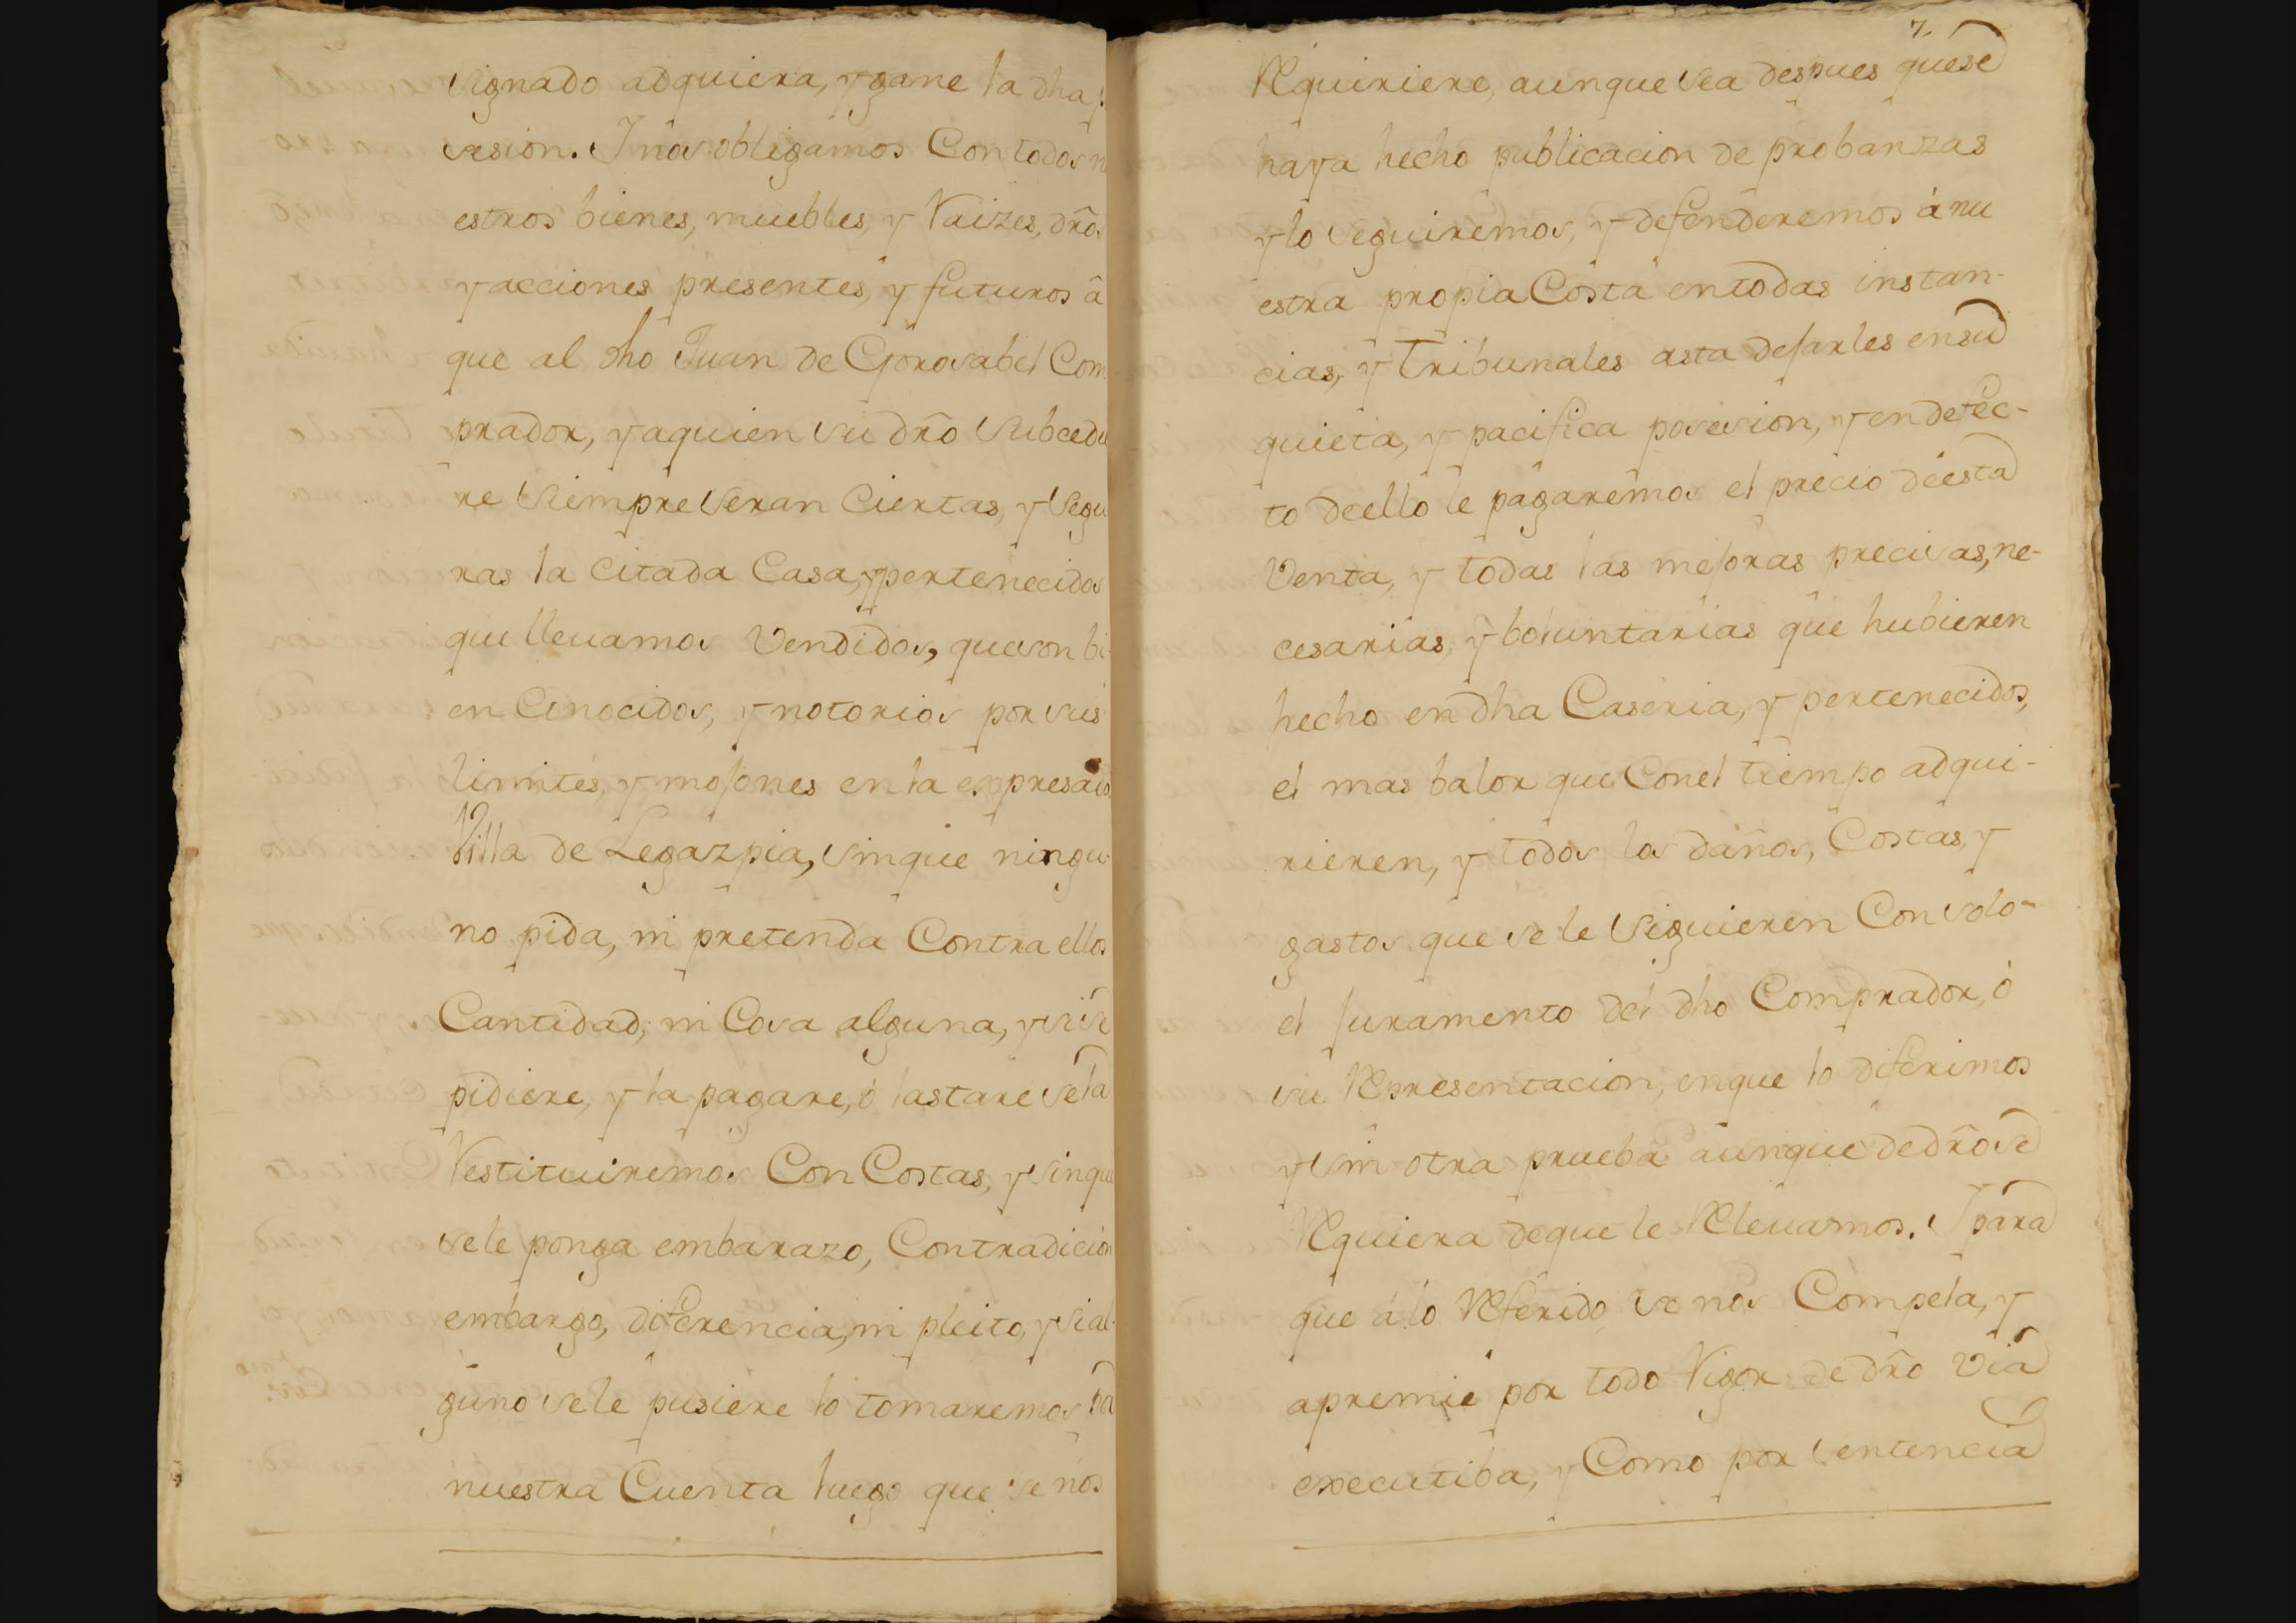 signado adquiera, y gane la dha p
cesion. Y nos obligamos Con todos n
estros bienes, muebles, y Raizes, dr̃os
y acciones presentes, y futuros â
que al dho Juan de Gorosabel Com
prador, y aquien su dr̃o Subcedie
re siempre seran Ciertas, y Segu
ras la citada Casa, y pertenecidos
que lleuamos Vendidos, que son bi-
en Conocidos, y notorios por sus
limites, y mojones en la expresada
Villa de Legazpia, sinque ningu-
no pida, ni pretenda Contra ellos
Cantidad, ni Cosa alguna, y si se
pidiere, y la pagare, ó lastare se la
Restituiremos Con Costas, y sinque
se le ponga embarazo, Contradicion
embargo, diferencia, ni pleito, y si al-
guno se le pusiere lo tomaremos pa
nuestra Cuenta luego que se nos
7.
Requiriere, aunque sea despues que se
haya hecho publicacion de probanzas
y lo seguiremos, y defenderemos á nu
estra propia Costa en todas instan-
cias, y Tribunales asta dejarles en su
quieta, y pacifica posesion, y en defec-
to de ello le pagarêmos el precio de esta
Venta, y todas las mejoras precisas, ne-
cesarias, y boluntarias que hubieren
hecho en dha Caseria, y pertenecidos,
el mas balor que Con el tiempo adqui-
rieren, y todos los daños, Costas, y
gastos que se le siguieren Con solo-
el juramento del dho Comprador, ó
su Representacion, en que lo diferimos
y sin otra prueba aunque de dr̃o se
Requiera de que le Releuamos. Y para
que á lo Referido se nos Compela, y
apremie por todo Rigor de dr̃o Via
executiba, y Como por Sentencia